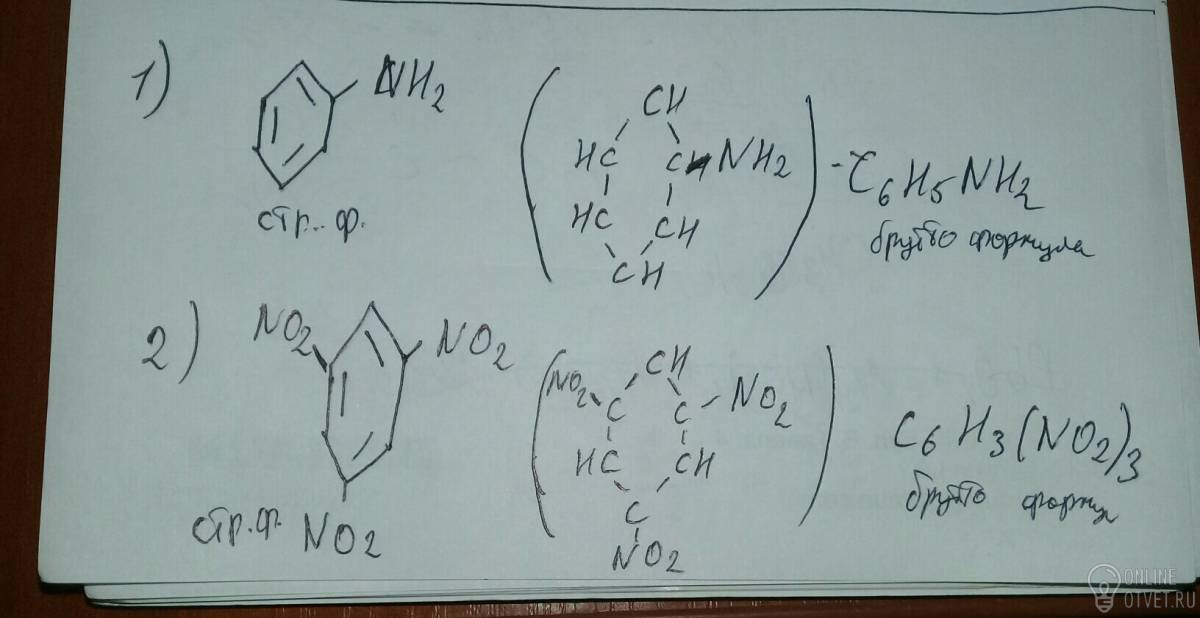 1)
NH2
CH
HC CH NH2
HC CH
CH
- C6H5NH2
стр. ф.
брутто формула
2)
NO2 NO2
NO2
стр. ф.
CH
NO2 C C NO2
HC CH
C
NO2
C6H3(NO2)3
брутто
ONLINE
OTVET.RU